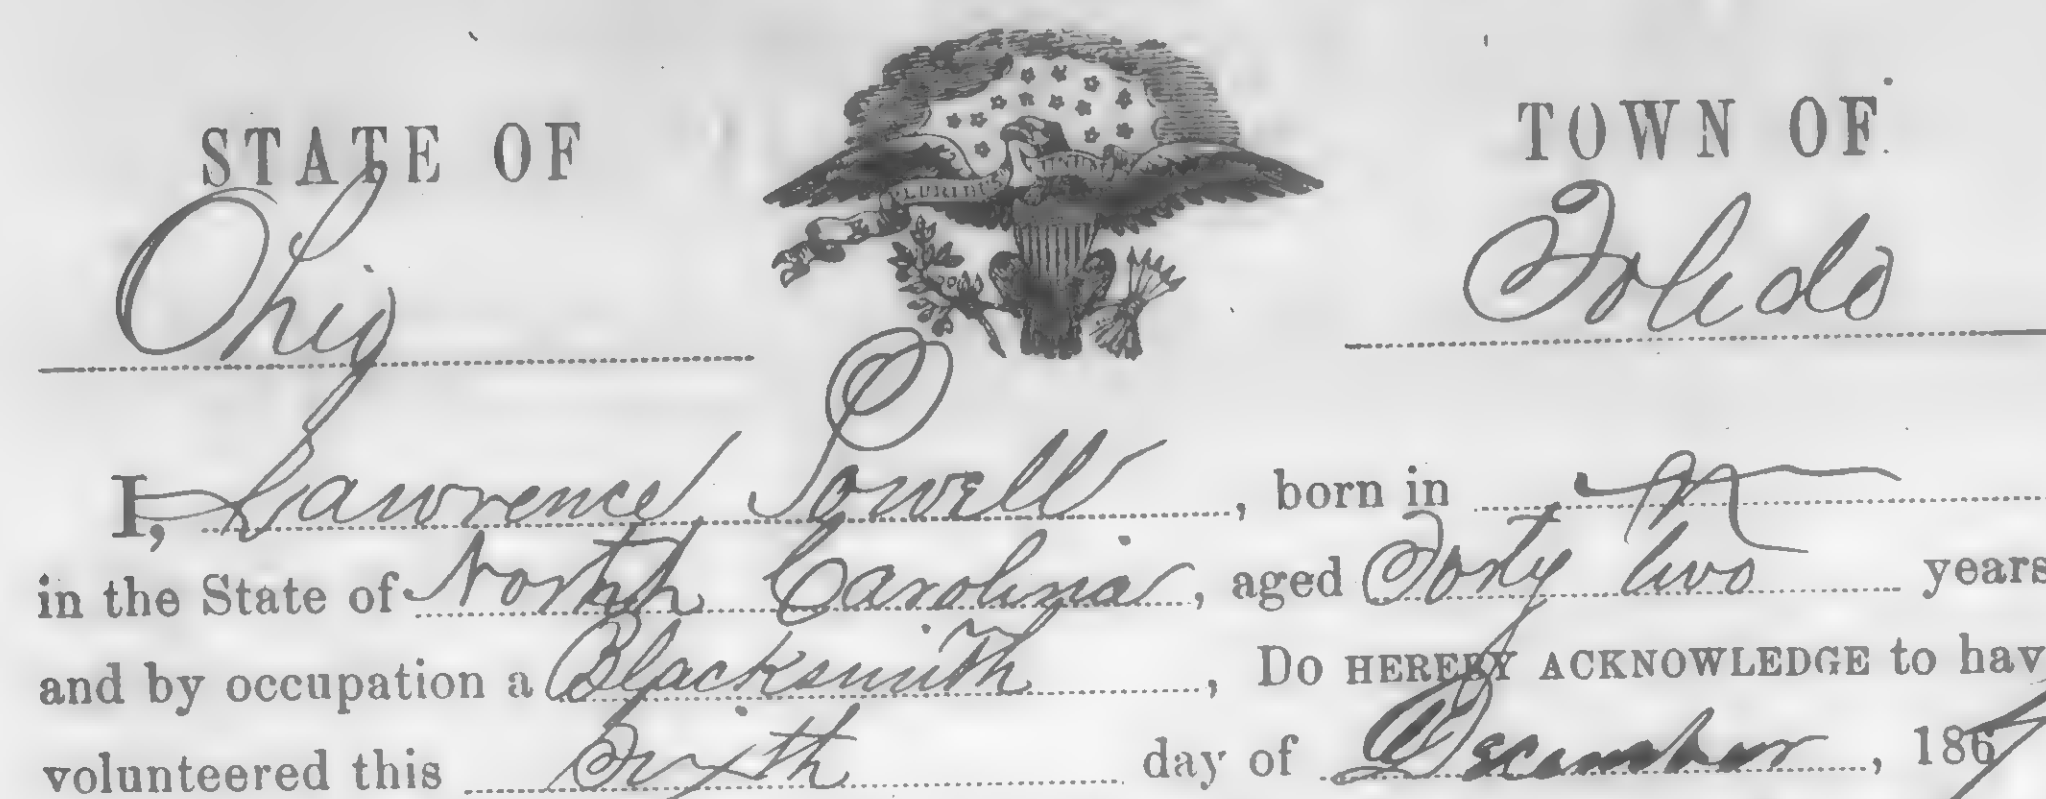 STATE OF
TOWN OF
Ohio
Toledo
PLURIBUS UNUM
I, Lawrence Powell, born in
in the State of North Carolina, aged Forty two years
and by occupation a Blacksmith, DO HEREBY ACKNOWLEDGE to hav
volunteered this Sixth day of December, 186